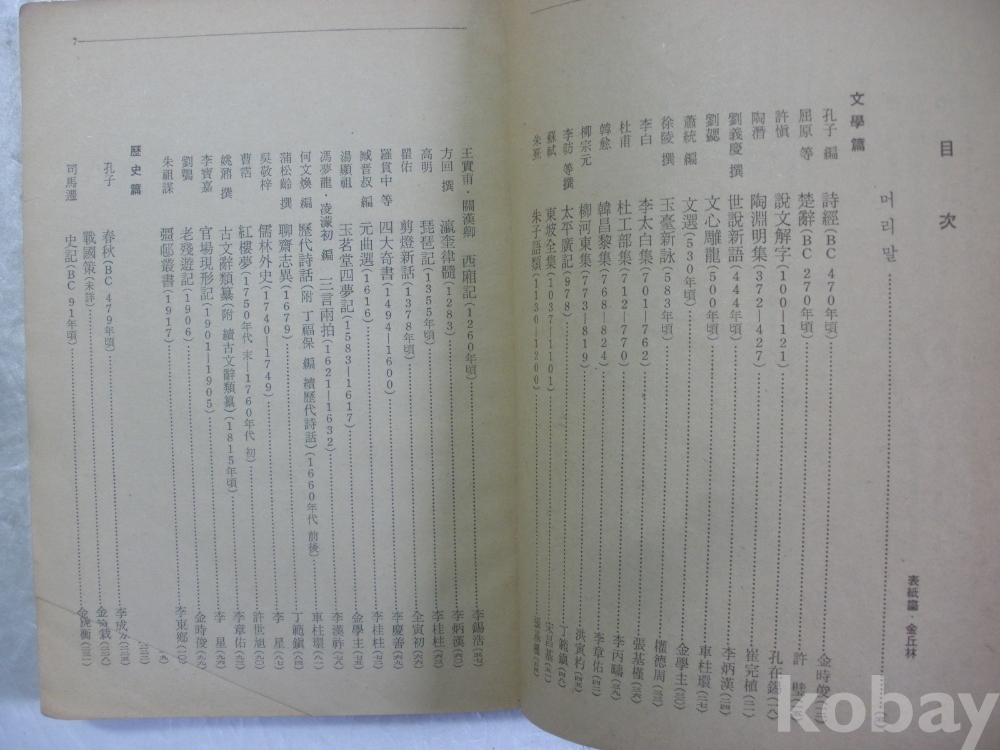 目次
表紙畵·金丘林
머리말
文學篇
孔子 編 詩經(BC 470年頃) 金時俊
屈原 等 楚辭(BC 270年頃) 許璧
許愼 說文解字(100—121) 孔在錫
陶潛 陶淵明集(372—427) 崔完植
劉義慶 撰 世說新語(444年頃) 李炳漢
劉勰 文心雕龍(500年頃) 車柱環
蕭統 編 文選(530年頃) 金學主
徐陵 撰 玉臺新詠(583年頃) 權德周
李白 李太白集(701—762) 張基槿
杜甫 杜工部集(712—770) 李丙疇
韓愈 韓昌黎集(768—824) 李章佑
柳宗元 柳河東集(773—819) 洪寅杓
李昉 等撰 太平廣記(978) 丁範鎭
蘇軾 東坡全集(1037—1101) 宋昌基
朱熹 朱子語類(1130—1200)
7
王實甫·關漢卿 西廂記(1260年頃) 李錫浩
方回 撰 瀛奎律髓(1283) 李炳漢
高明 琵琶記(1355年頃) 李桂柱
瞿佑 剪燈新話(1378年頃) 全寅初
羅貫中 等 四大奇書(1494—1600) 李慶善
臧晋叔 編 元曲選(1616) 李桂柱
湯顯祖 玉茗堂四夢記(1583—1617) 金學主
馮夢龍·凌濛初 編 三言兩拍(1621—1632) 李漢祚
何文煥 編 歷代詩話(附 丁福保 編 續歷代詩話)(1660年代 前後) 車柱環
蒲松齡 撰 聊齋志異(1679) 丁範鎭
吳敬梓 儒林外史(1740—1749) 李星
曹霑 紅樓夢(1750年代 末—1760年代 初) 許世旭
姚鼐 撰 古文辭類纂(附 續古文辭類纂)(1815年頃) 李章佑
李寶嘉 官場現形記(1901—1905) 李星
劉鶚 老殘遊記(1906) 金時俊
朱祖謀 彊邨叢書(1917) 李東鄕
歷史篇
孔子 春秋(BC 479年頃) 李成
戰國策(未詳) 金
司馬遷 史記(BC 91年頃) 金
kobay